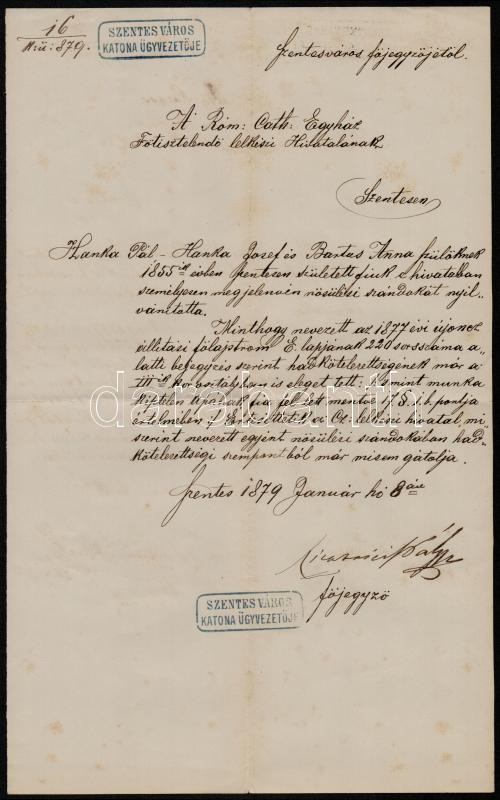 16
879.
SZENTES VÁROS
KATONA ÜGYVEZETŐJE
Szentesváros főjegyzőjétől.
A' Róm: Cath: Egyház
Főtisztelendő lelkészi Hivatalának
Szentesen
Hanka Pál – Hanka Josef és Bartas Anna szülőknek
1855ik évben Szentesen született fiuk e hivatalban
személyesen megjelenvén nősülési szándokát nyil„
vánitotta.
Minthogy nevezett az 1877 évi újoncz
állitási főlajstrom E. lapjának 220 sorsszáma a„
latti bejegyzés szerint hadkötelezettségének már a
IIIik korosztályban is eleget tett: mint munka
képtelen apának fia fel lett mentve 17 §. b. pontja
értelmében; Értesittetik a Cz. lelkészi hivatal, mi
szerint nevezett egyént nősülési szándokában had„
kötelezettségi szempontból már misem gátolja.
Szentes 1879 Január hó 8án
főjegyző
SZENTES VÁROS
KATONA ÜGYVEZETŐJE
árverezés